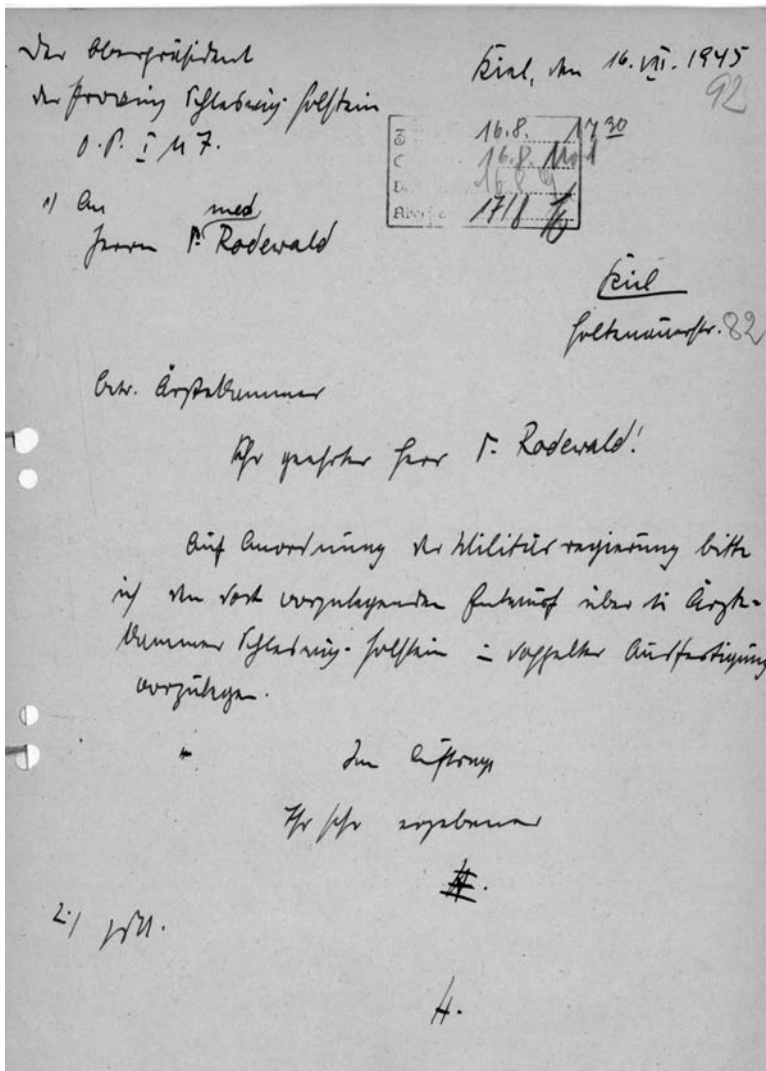 Der Oberpräsident
Kiel, den 16. VIII. 1945
der Provinz Schleswig-Holstein
92
O.P. I M 7.
16.8. 17 30
16.8.
16.8
17/8
1) An
med
Herrn Dr. Rodewald
Kiel
Holtenauerstr. 82
betr. Ärztekammer
Sehr geehrter Herr Dr. Rodewald!
Auf Anordnung der Militärregierung bitte
ich den dort vorzulegenden Entwurf über die Ärzte-
kammer Schleswig-Holstein in doppelter Ausfertigung
vorzulegen.
Im Auftrage
Ihr sehr ergebener
H.
2.)
H.